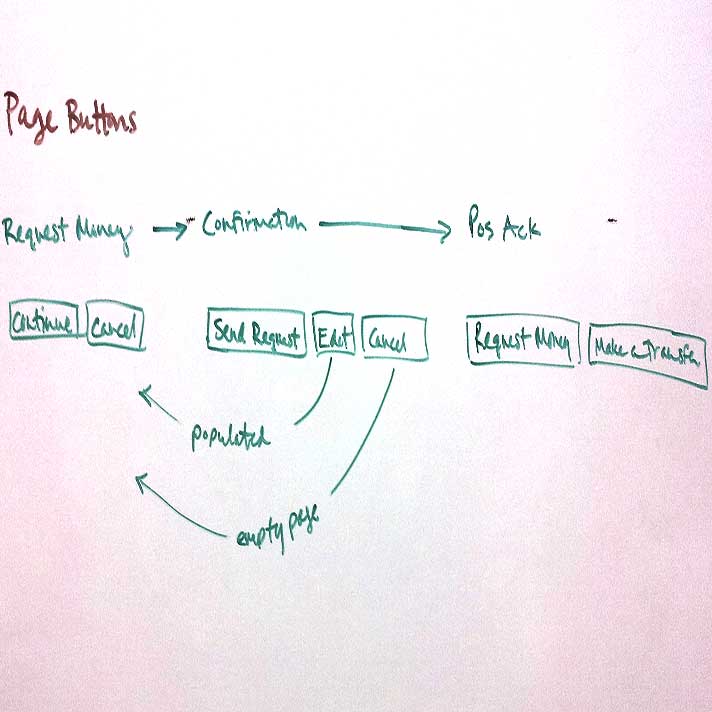 Page Buttons
Request Money → Confirmation → Pos Ack
Continue Cancel Send Request Edit Cancel Request Money Make a Transfer
populated
empty page